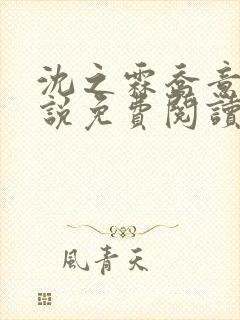 沈之霖喬意
說免費閱讀
風青天